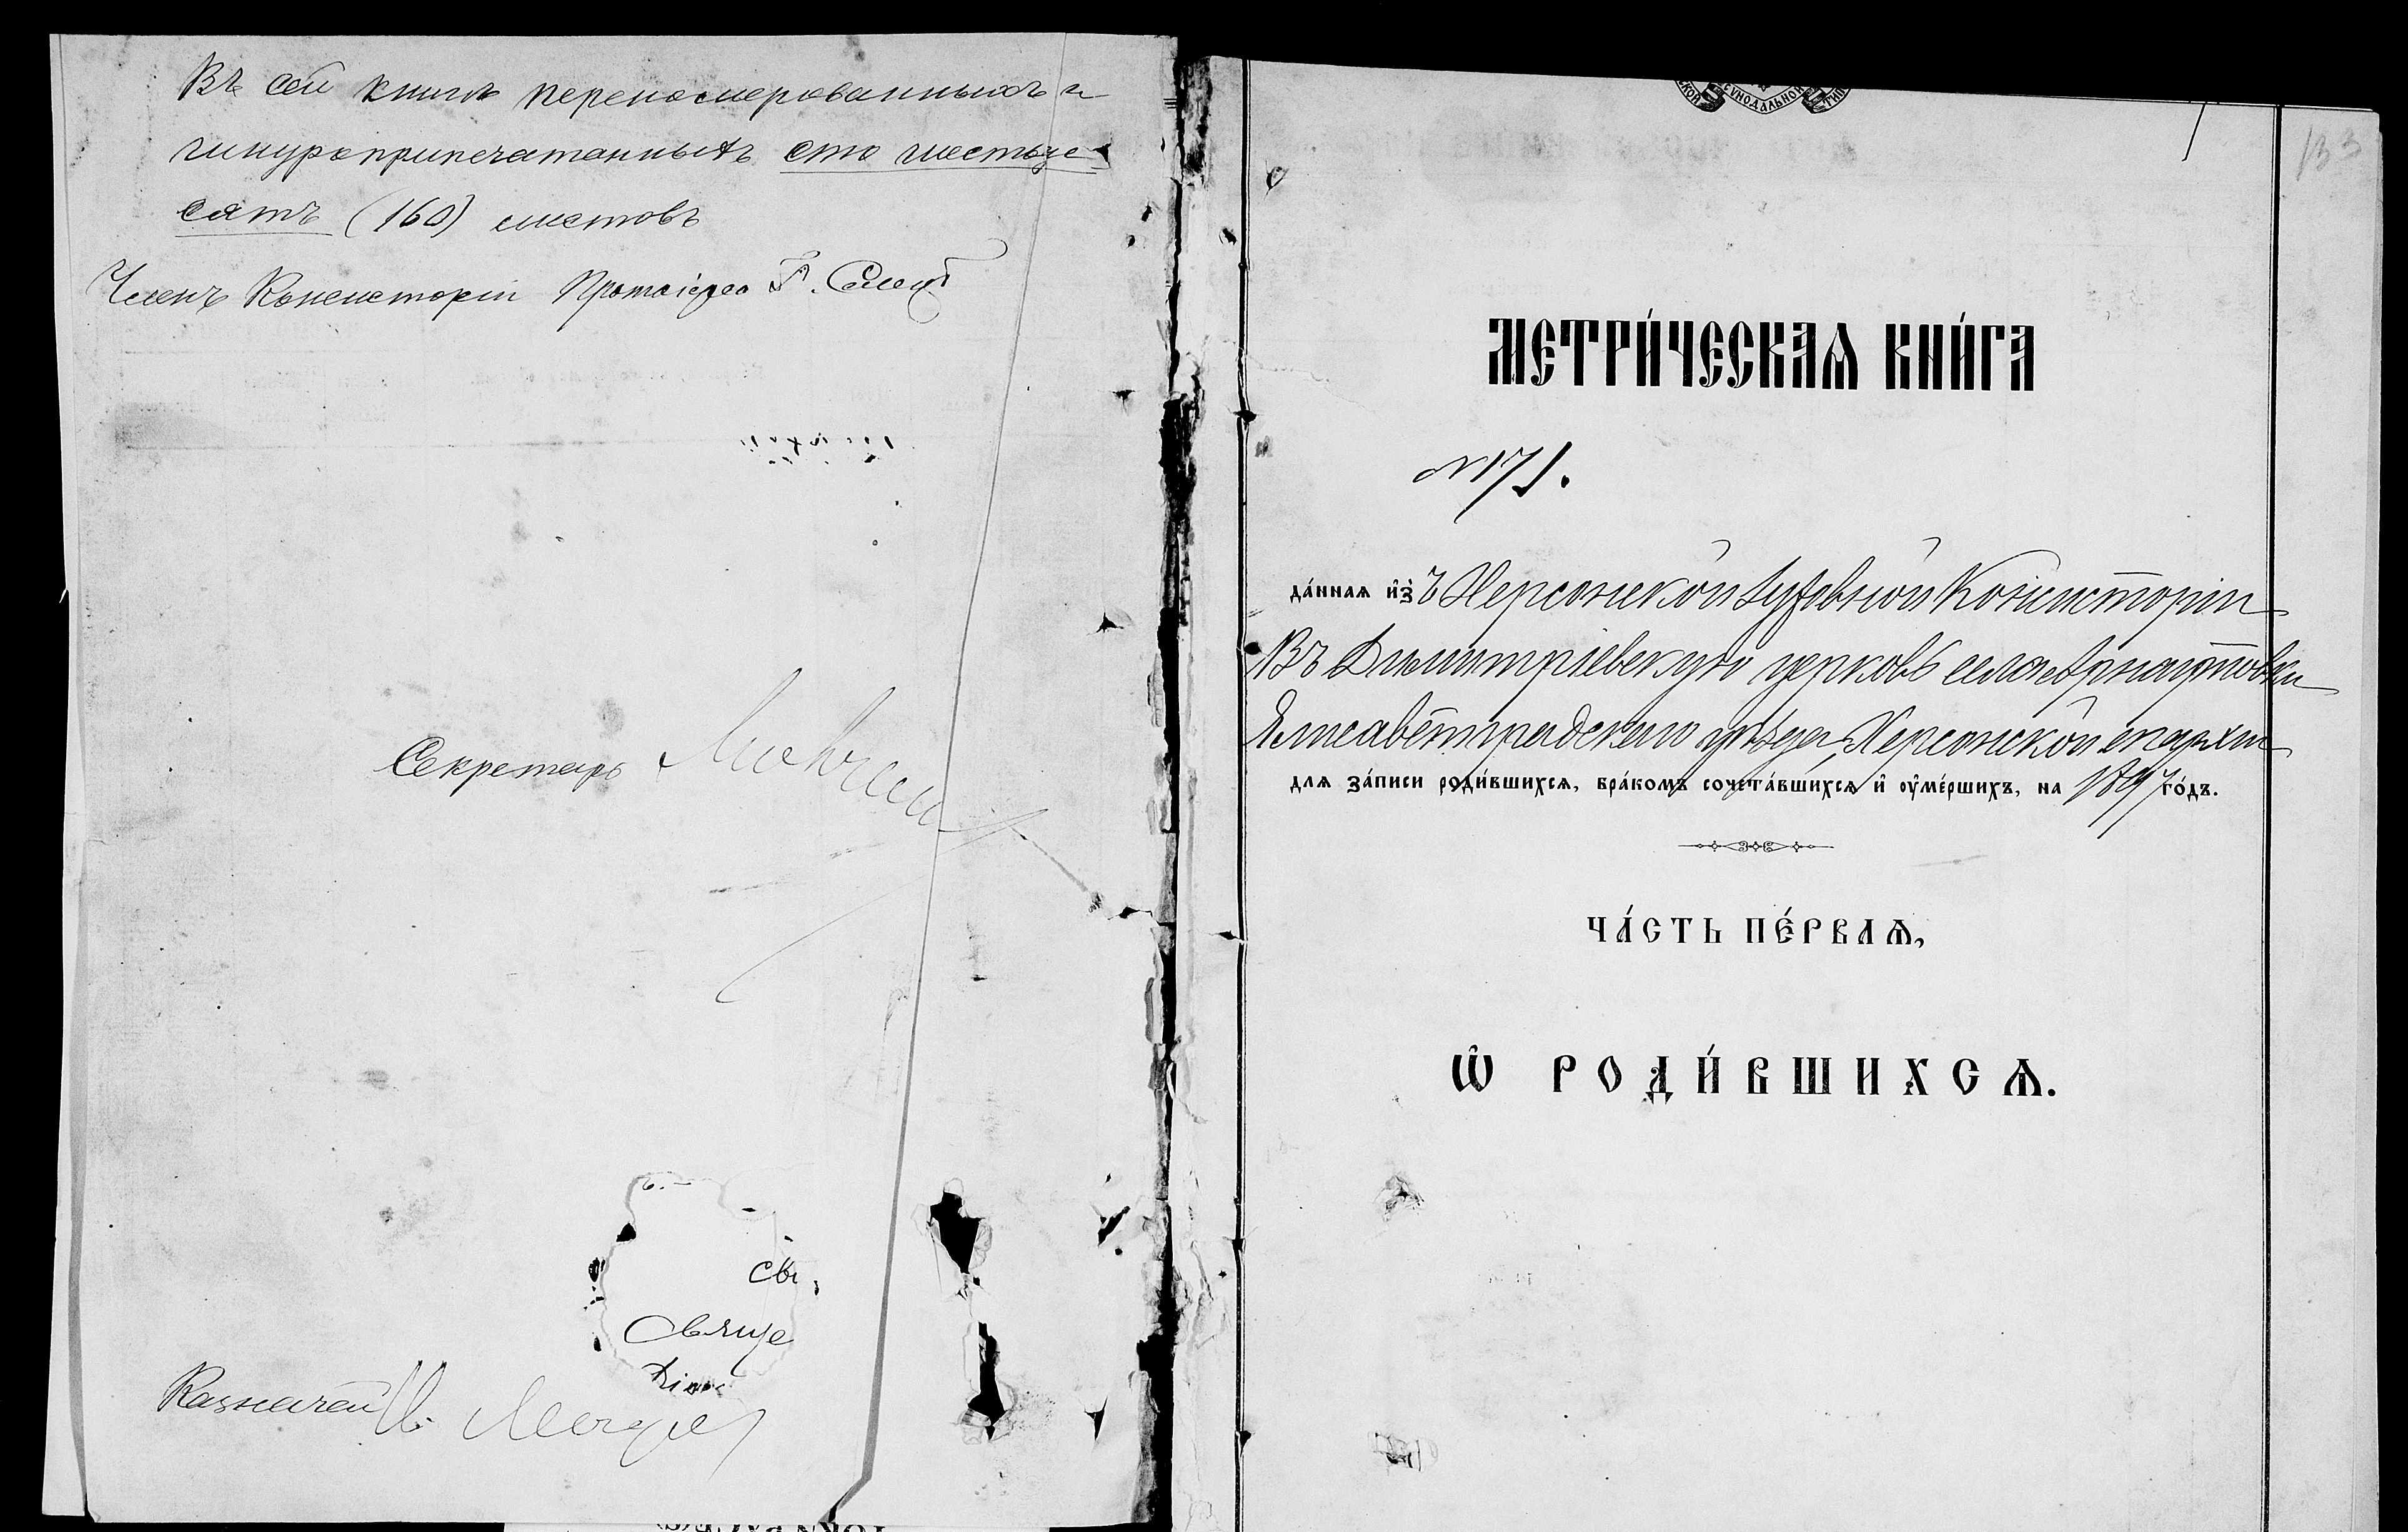 Въ сей книгѣ переномерованныхъ и
шнуроприпечатанныхъ сто шестьде-
сятъ (160) листовъ
Членъ Консисторіи Протоіерей
Секретарь
свя
Свяще
Діак
Казначей
СѴНОДАЛЬНОЙ
133
МЕТРИ́ЧЕСКАѦ КНИ́ГА
№ 171.
да́ннаѧ и҆зъ Херсонской Духовной Консисторіи
Въ Димитріевскую церковь села Арнаутовки
Елисаветградскаго уѣзда, Херсонской епархіи
длѧ за́писи роди́вшихсѧ, бра́комъ сочета́вшихсѧ и҆ оу҆ме́ршихъ, на 1897 го́дъ.
ЧА́СТЬ ПЕ́РВАѦ,
Ѡ҆ РОДИ́ВШИХСѦ.